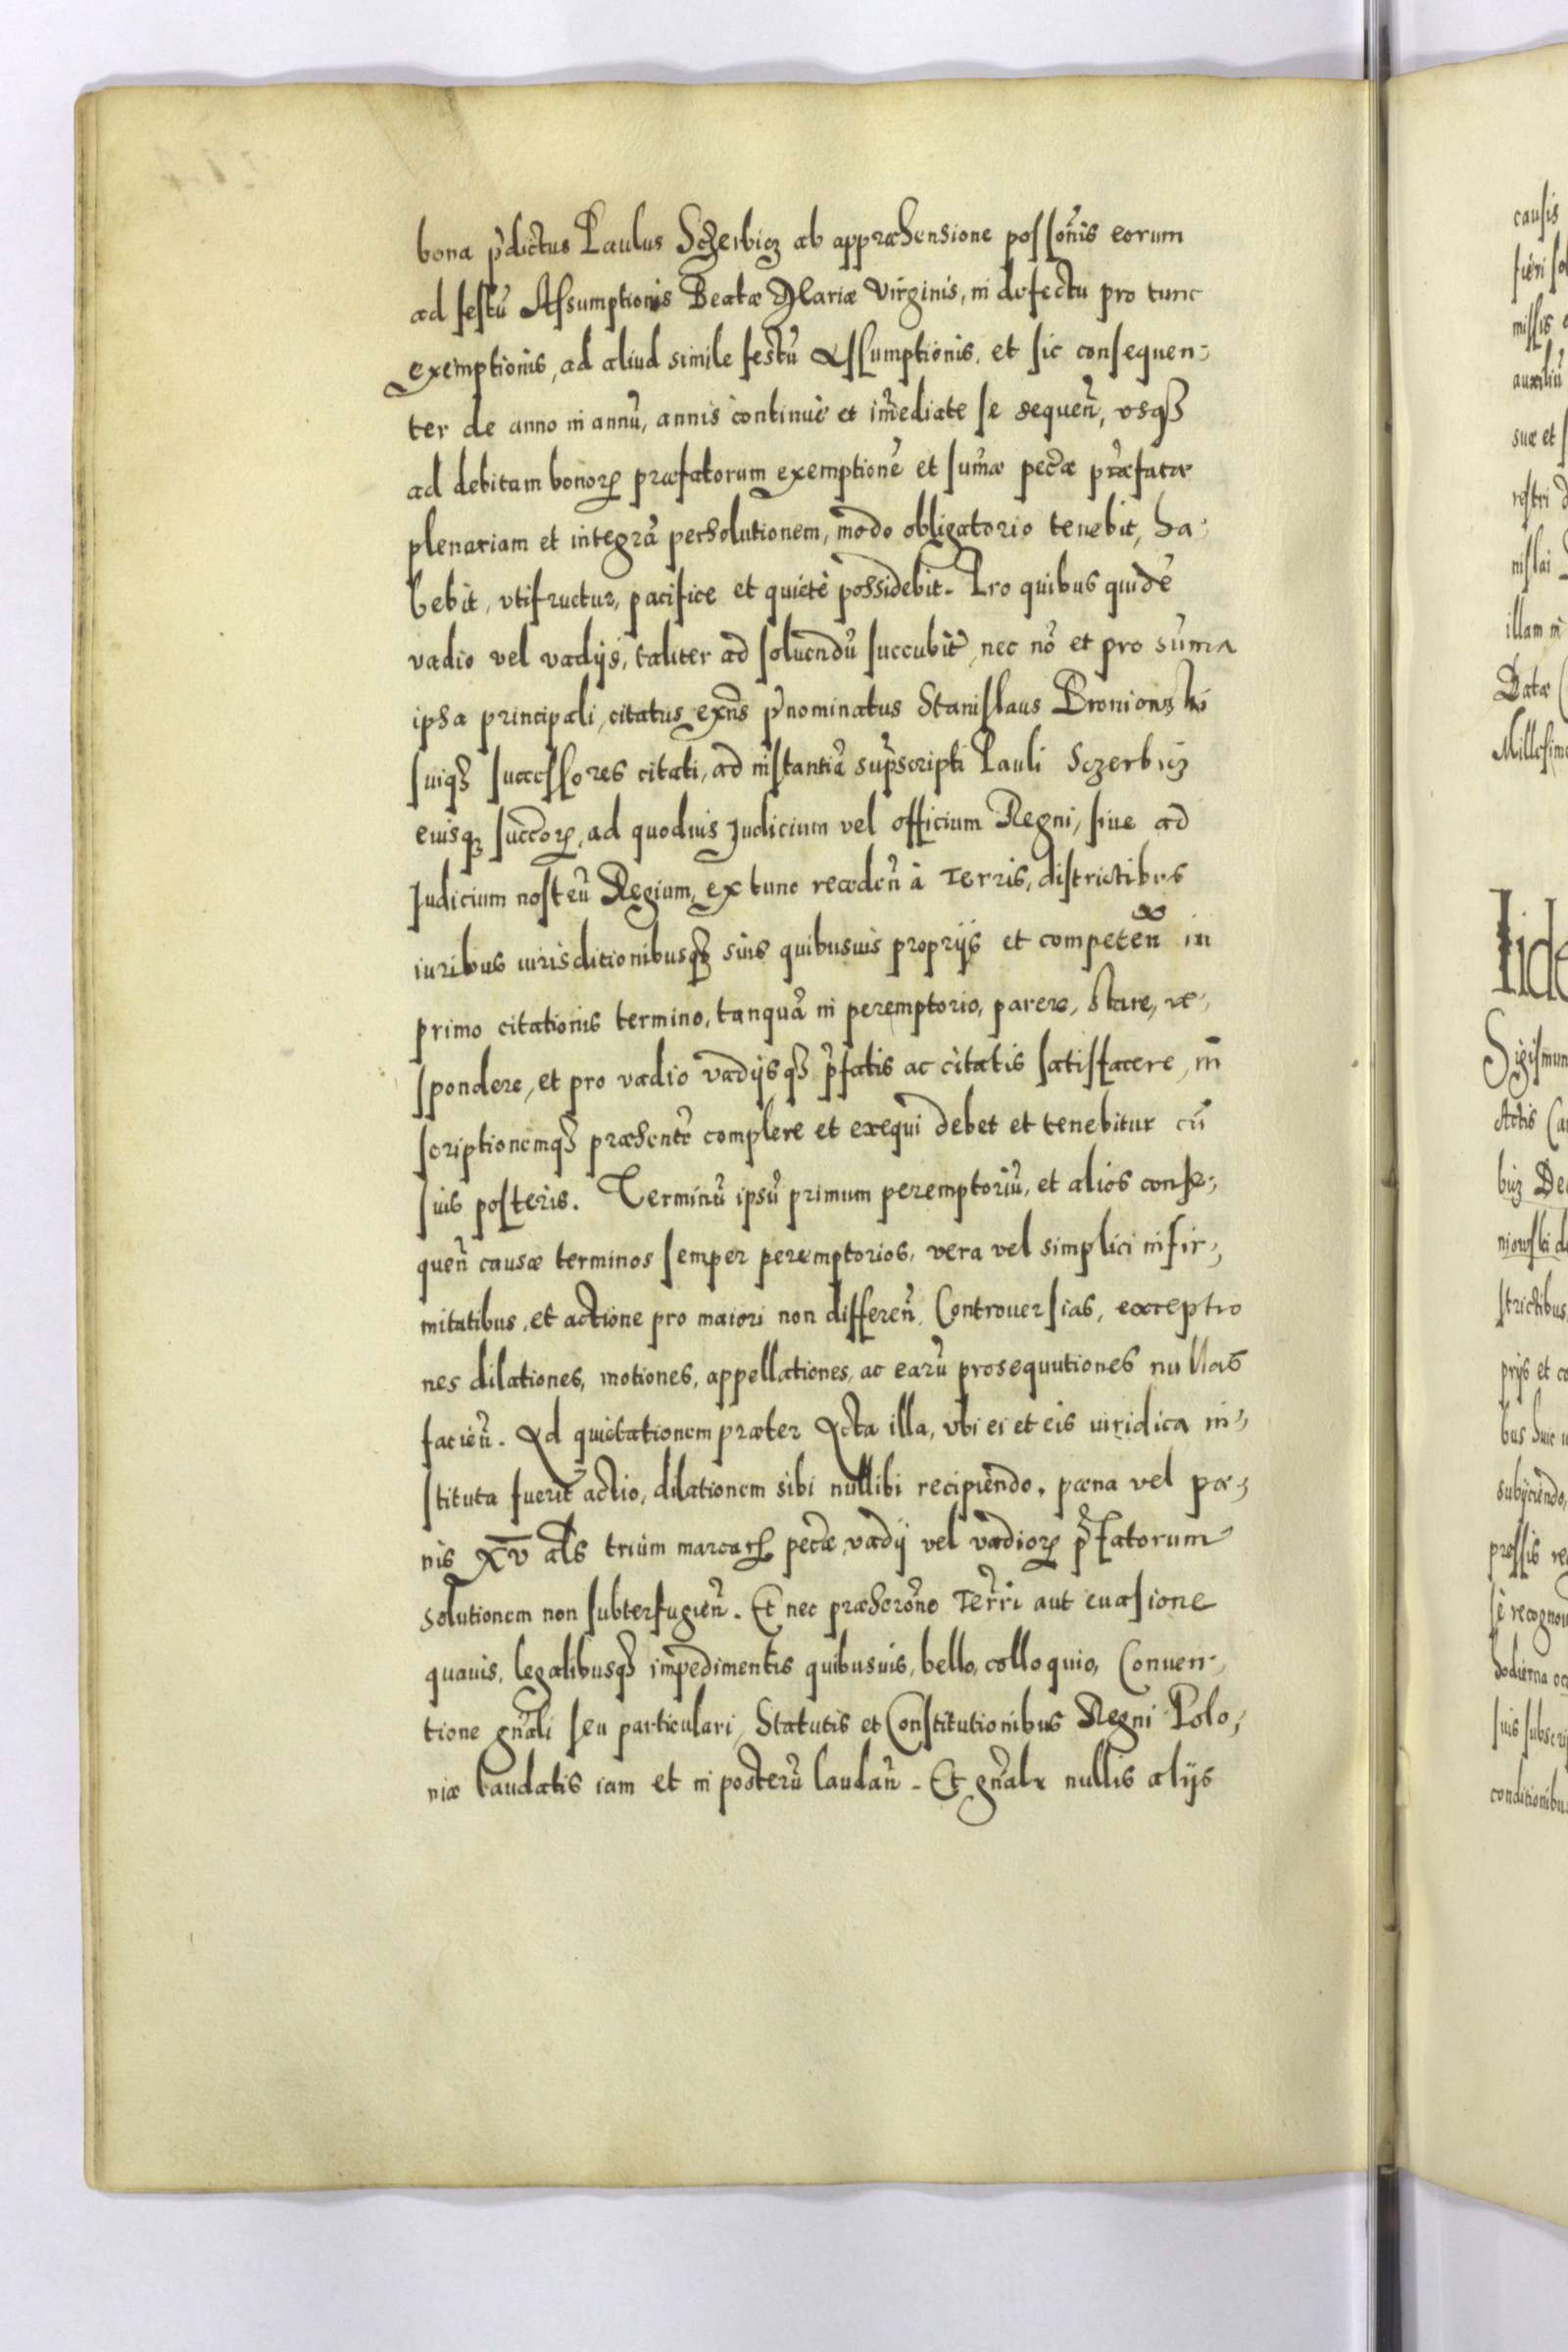 bona p̃dictus Paulus Sczerbicz ab appræhensione possõnis eorum
ad festũ Assumptionis Beatæ Mariæ Virginis, in defectu pro tunc
exemptionis, ad aliud simile festũ Assumptionis, et sic consequen-
ter de anno in annũ, annis continuè et im̃ediate se sequeñ, vsqꝫ
ad debitam bonorꝝ præfatorum exemptionẽ et sum̃æ pec̃æ præfatæ
plenariam et integrã persolutionem, modo obligatorio tenebit, ha-
bebit, vtifructur, pacifice et quietè possidebit. Pro quibus quidẽ
vadio vel vadijs, taliter ad soluendũ succubit̃, nec nõ et pro sum̃a
ipsa principali, citatus exñs p̃nominatus Stanislaus Bronionski
suiqꝫ successores citati, ad instantiã sup̃scripti Pauli Sczerbicz
eiusqꝫ succorꝝ, ad quoduis Judicium vel officium Regni, siue ad
Judicium nostrũ Regium, ex tunc recedeñ à Terris, districtibus
iuribus iurisditionibusqꝫ suis quibusuis proprijs et competeñ in
primo citationis termino, tanquã in peremptorio, parere, stare, re-
spondere, et pro vadio vadijsqꝫ p̃fatis ac citatis satisfacere, in
scriptionemqꝫ præsentẽ complere et exequi debet et tenebitur cũ
suis posteris. Terminũ ipsũ primum peremptoriũ, et alios conse-
queñ causæ terminos semper peremptorios, vera vel simplici infir-
mitatibus, et actione pro maiori non differeñ. Controuersias, exceptio
nes dilationes, motiones, appellationes, ac earũ prosequutiones nullas
facieñ. Ad quietationem præter Acta illa, vbi ei et eis iuridica in-
stituta fuerit actio, dilationem sibi nullibi recipiendo, pæna vel pæ-
nis XV als trium marcarꝝ pec̃æ, vadij vel vadiorꝝ p̃fatorum
solutionem non subterfugieñ. Et nec præscrõne Terri aut euasione
quauis, legalibusqꝫ impedimentis quibusuis, bello, colloquio, Conuen-
tione gñali seu particulari, Statutis et Constitutionibus Regni Polo-
niæ laudatis iam et in posterũ laudañ. Et gñalr nullis alijs